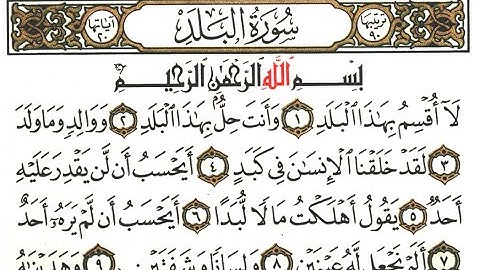 ترتيبها ٩٠ سُورَةُ الْبَلَدِ آياتها ٢٠
بِسْمِ اللَّهِ الرَّحْمَٰنِ الرَّحِيمِ
لَآ أُقْسِمُ بِهَٰذَا ٱلْبَلَدِ ١ وَأَنتَ حِلٌّۢ بِهَٰذَا ٱلْبَلَدِ ٢ وَوَالِدٍ وَمَا وَلَدَ
٣ لَقَدْ خَلَقْنَا ٱلْإِنسَٰنَ فِى كَبَدٍ ٤ أَيَحْسَبُ أَن لَّن يَقْدِرَ عَلَيْهِ
أَحَدٌ ٥ يَقُولُ أَهْلَكْتُ مَالًا لُّبَدًا ٦ أَيَحْسَبُ أَن لَّمْ يَرَهُۥٓ أَحَدٌ
٧ أَلَمْ نَجْعَل لَّهُۥ عَيْنَيْنِ ٨ وَلِسَانًا وَشَفَتَيْنِ ٩ وَهَدَيْنَٰهُ